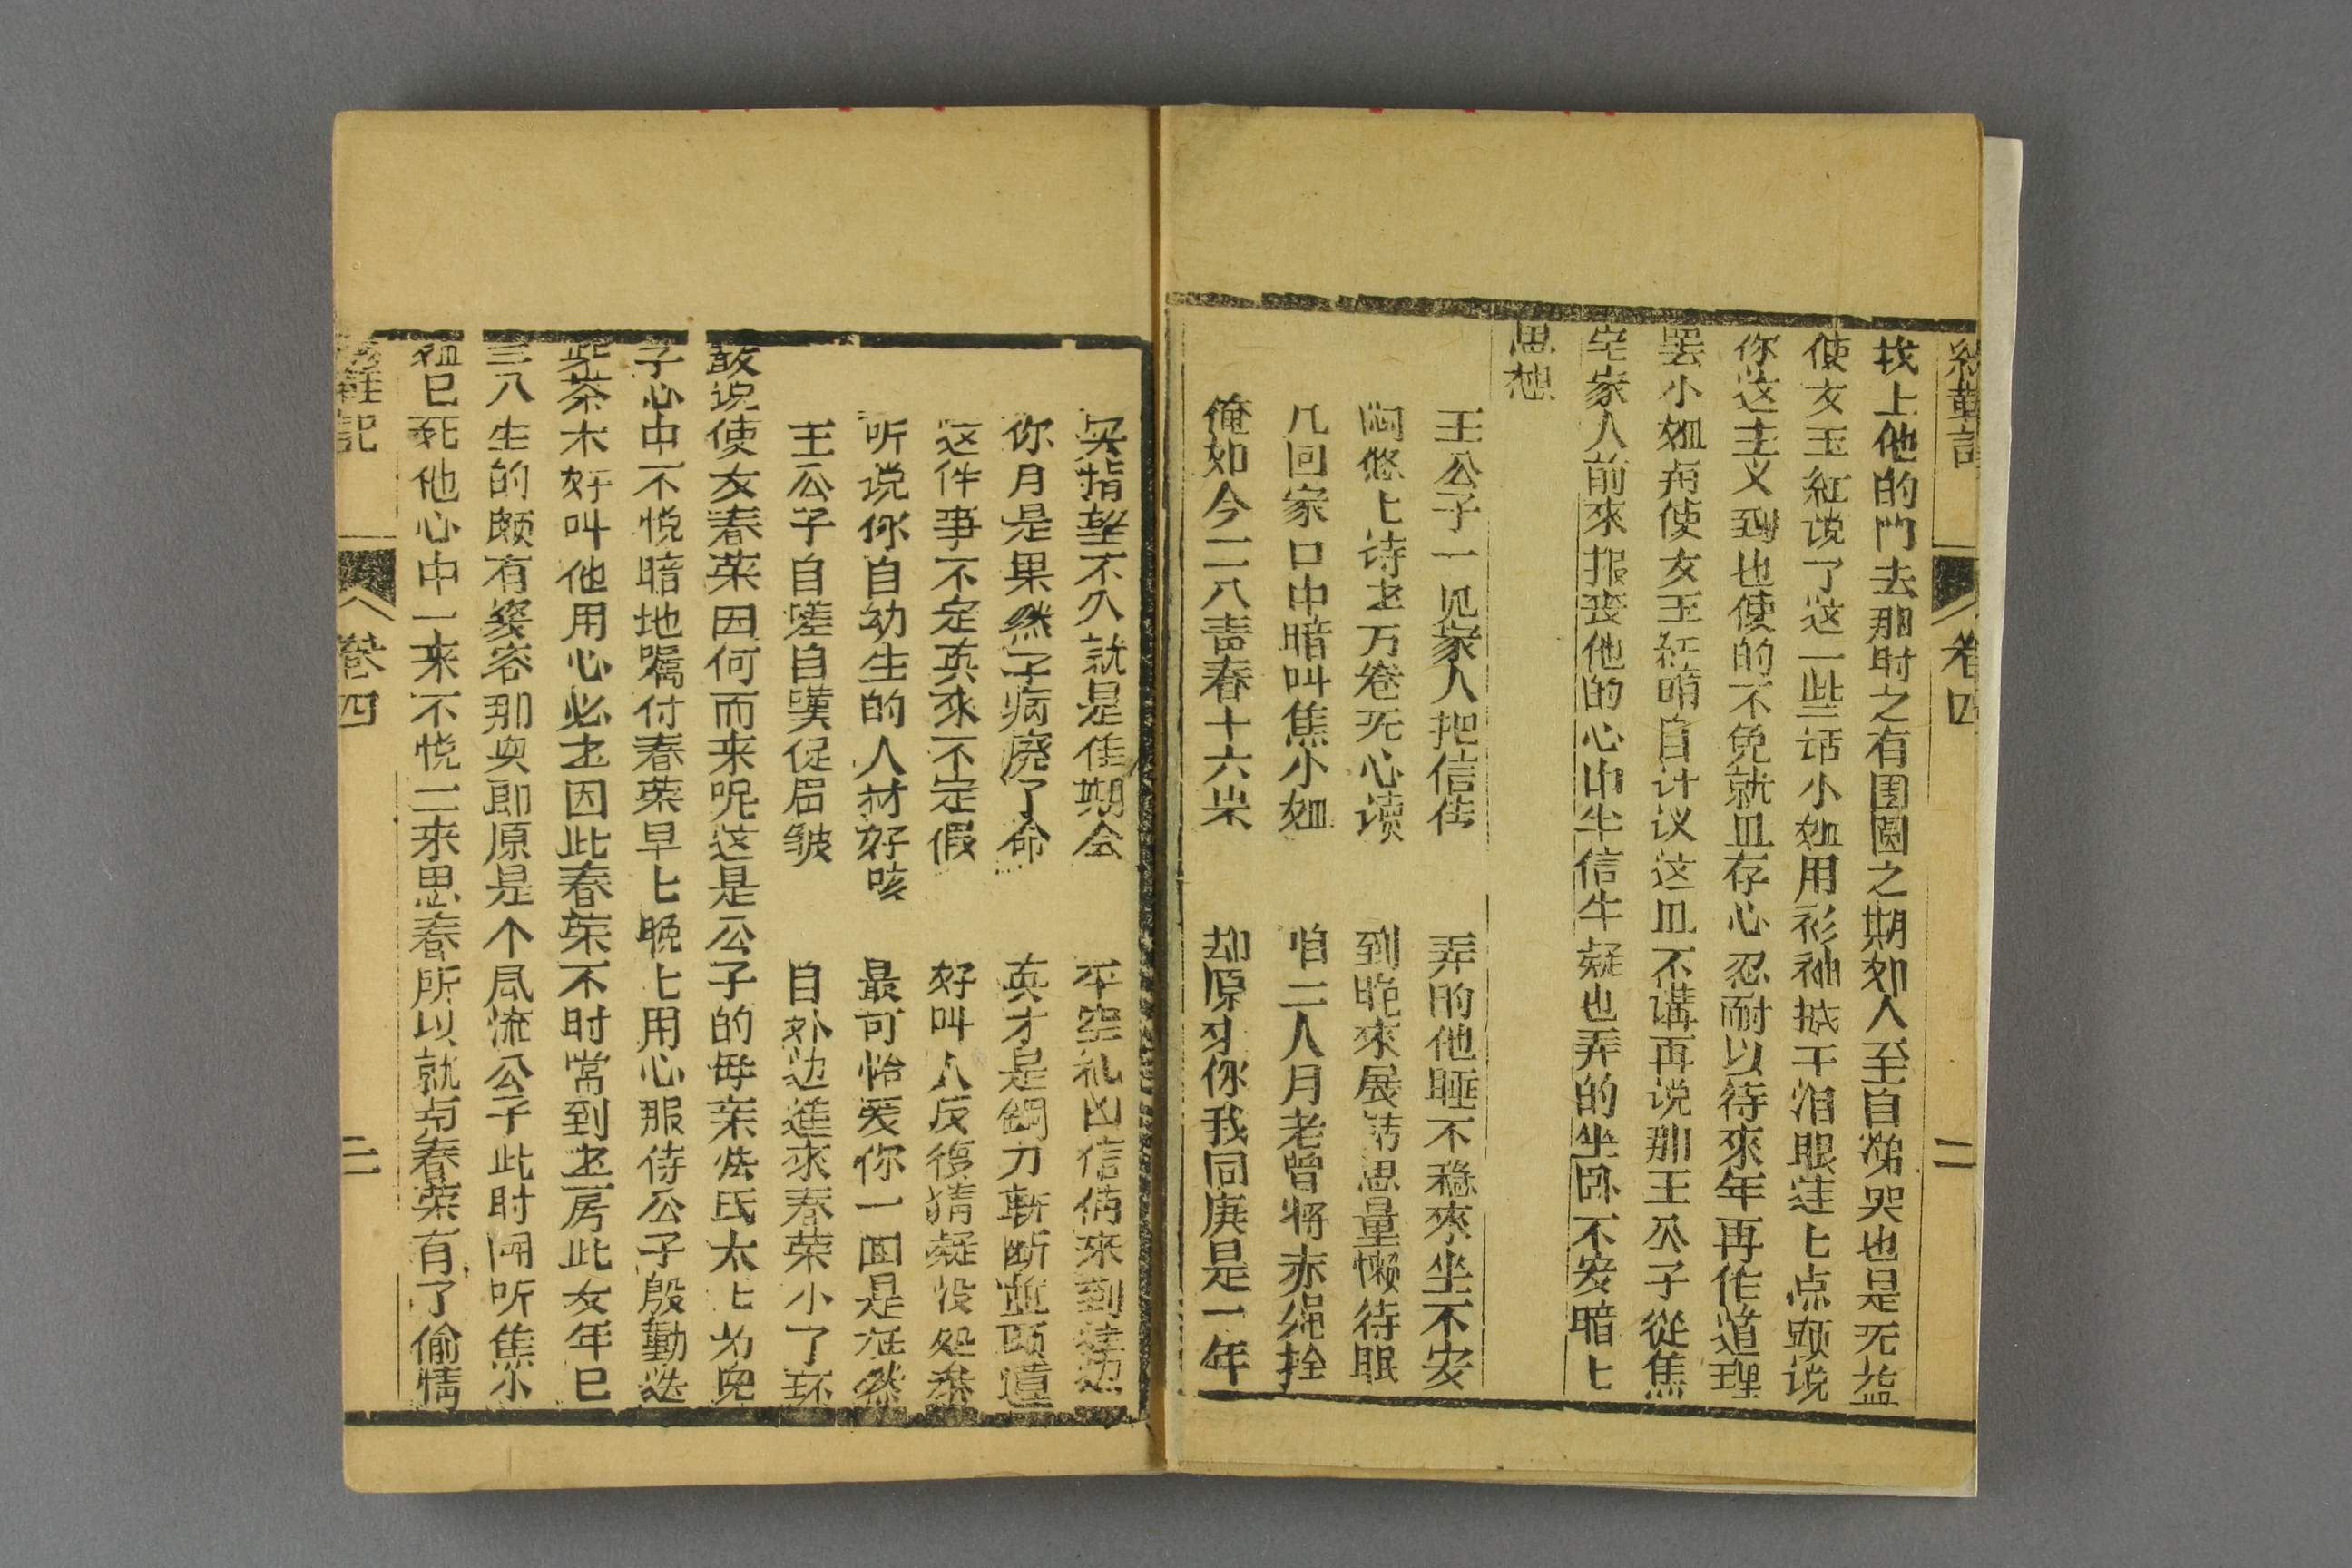 綉鞋記 卷四 二
找上他的門去那时之有团圓之期如人至自濌哭也是无益
使女玉紅说了这一些话小姐用衫袖揌干泪眼连上点頭说
你这主义到也使的不免就且存心忍耐以待來年再作道理
罢小姐与使女玉紅暗自计议这且不講再说那王公子從焦
宅家人前來报丧他的心中半信半疑也弄的坐卧不安暗上
思想
王公子一见家人把信传 弄的他睡不稳來坐不安
闷悠上诗书万卷无心读 到晚來展转思量懒待眠
几回家口中暗叫焦小姐 咱二人月老曾将赤绳拴
俺如今二八青春十六岁 却原來你我同庚是一年
实指望不久就是佳期会 平空礼凶信俏來到這边
你月是果然子病廃了命 真才是鋼刀斬断並頭蓮
这件事不定真來不定假 好叫人反復猜疑没处参
听说你自幼生的人材好咳 最可怜爱你一囬是在然
王公子自嗟自嘆促眉皱 自外边進來春荣小了环
敢说使女春荣因何而来呢这是公子的母亲法氏太上为児
子心中不悦暗地嘱付春荣早上晚上用心服侍公子殷勤送
些茶水好叫他用心必书因此春荣不时常到书房此女年已
三八生的颇有姿容那奂郎原是个風流公子此时闻听焦小
姐已死他心中一来不悦二来思春所以就与春荣有了偷情
綉鞋記 卷四 二